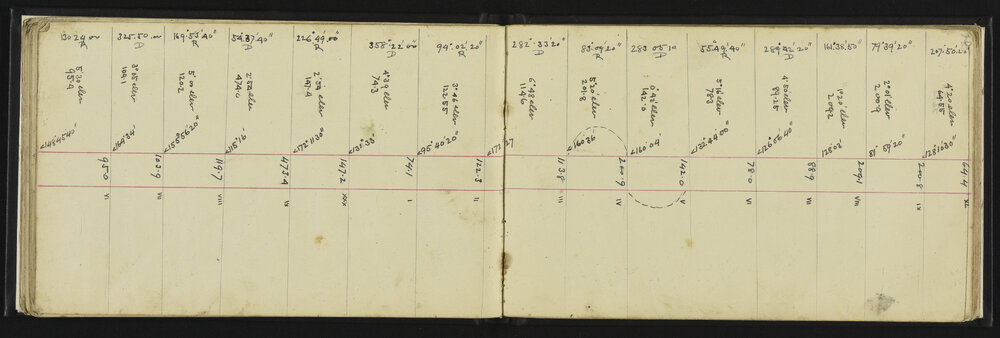 130 24 00"
R
325.50.00
A
169.53'.40"
R
54.37.40"
A
226°49'.00"
R
358°.22'00"
A
94°.02'.20"
R
282°.33'20"
A
83.09'20"
R
283 05 10
A
55.49'.40"
R
289°42'.20"
A
161°.38'.50"
79°39'20"
207.50'.20"
5°30 elev
95.4
3°05 elev
104.1
5° 00 elev
120.2
2°54 elev
474.0
2°54 elev
147.4
4°39 elev
74.3
3°46 elev
112.55
6°48 elev
114.6
5°20 elev
201.8
0°43' elev
142.0
5°16 elev
78.3
4°50' elev
89.25
1°20' elev
209.2
2°01' elev
200.9
4°20 elev
64.55
<148 45 40"
<164 34'
<155°56'20"
<115°.16'
<172°11'30"
<131°.33'
<95°.40'20"
<171.27
<160 36
<160°.09
<132°44'00"
<126°56'40"
128°02'
81°59'20
<128°10'30"
95.0
103.9
119.7
473.4
147.2
74.1
112.3
113.8
200.9
142.0
78.0
88.9
209.1
200.8
64.4
VI
VII
VIII
IX
XXX
I
II
III
IV
V
VI
VII
VIII
IX
XL